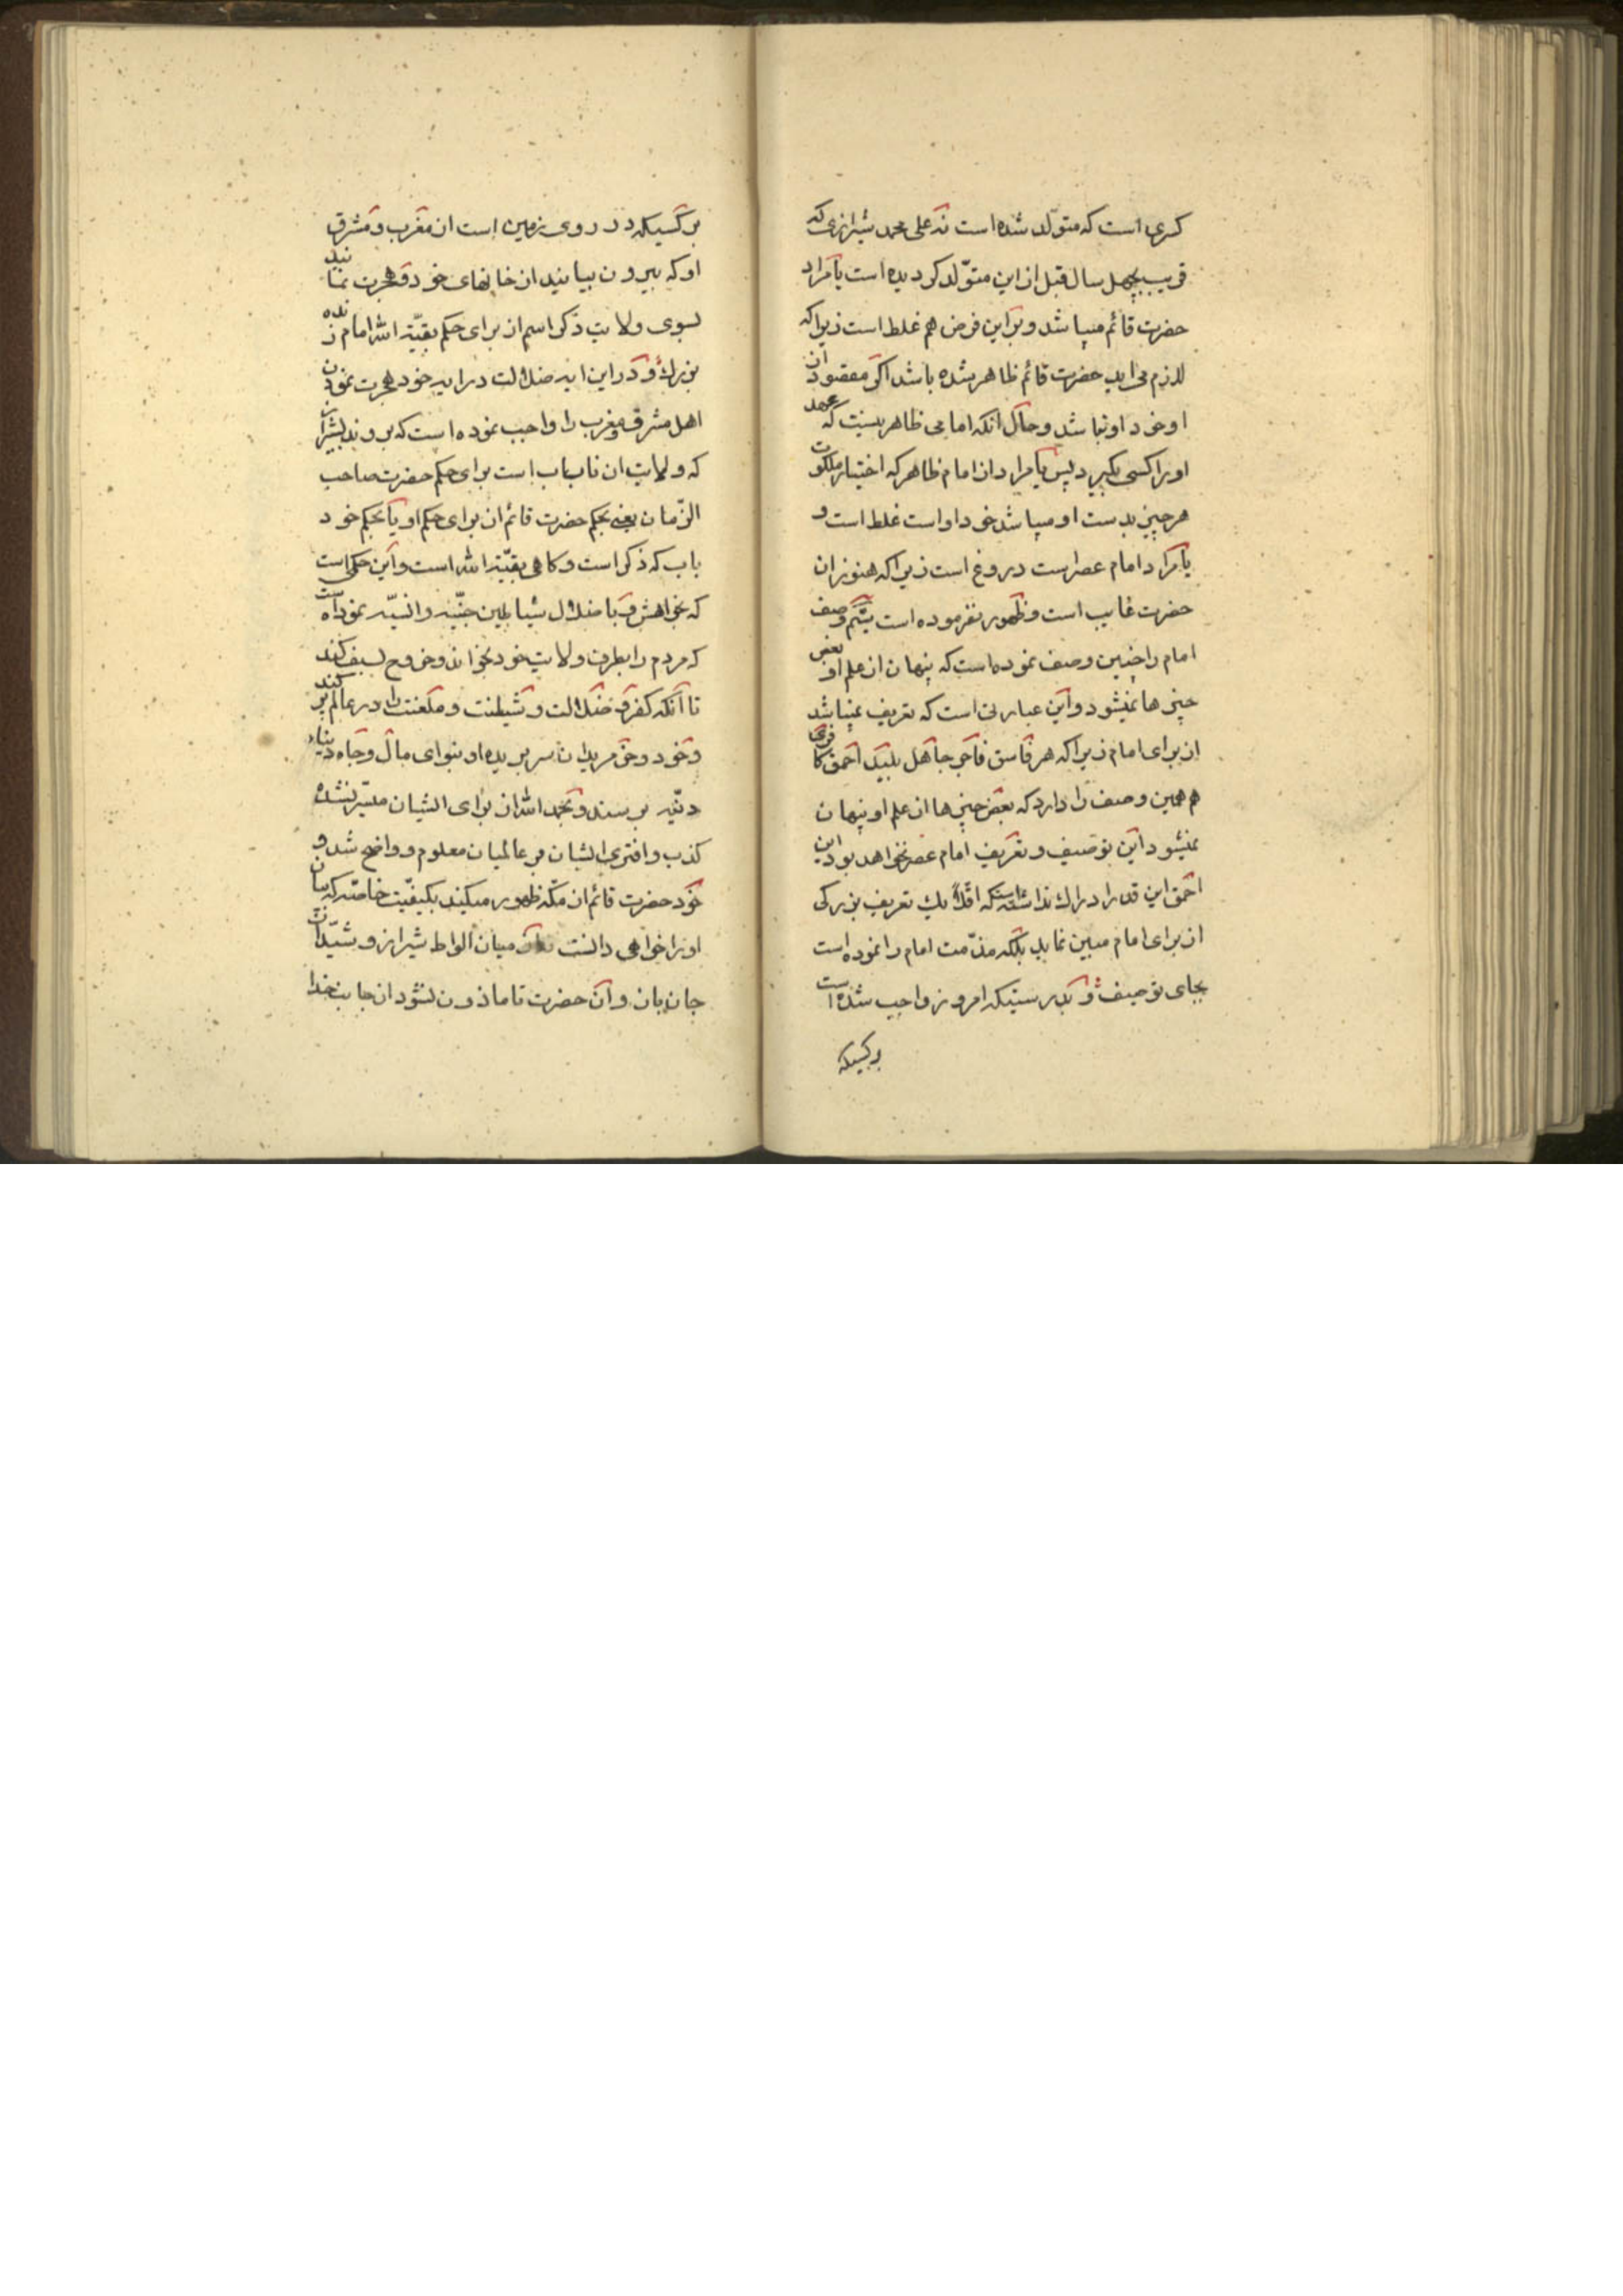 کسری است که متولّد شده است نه علی محمد شیرازی که
قریب بچهل سال قبل از این متولّد کردیده است یا مراد
حضرت قائم میباشد و بر این فرض هم غلط است زیرا که
لازم می اید حضرت قائم ظاهر شده باشد اکر مقصود ان
او خود او نباشد و حال انکه امامی ظاهر نیست که عهد
او را کسی بکیرد پس یا مراد از امام ظاهر که اختیار ملکوت
هر چیز بدست او میباشد خود او است غلط است و
یا مراد امام عصر است دروغ است زیرا که هنوز ان
حضرت غایب است و ظهور نفرموده است ششم وصف
امام را چنین وصف نموده است که پنهان از علم او بعض
چیزها نمیشود و این عبارتی است که تعریف نمیباشد
از برای امام زیرا که هر فاسق فاجر جاهل بلید احمق کافری
هم همین وصف را دارد که بعض چیزها از علم او پنهان
نمیشود این توصیف و تعریف امام عصر نخواهد بود این
احمق این قدر ادراک نداشته است که اقلاً یک تعریف بزرکی
از برای امام مبین نماید بلکه مذّمت امام را نموده است
بجای توصیف و بدرستیکه امروز واجب شده است
بر کسیکه
بر کسیکه در روی زمین است از مغرب و مشرق
او که بیرون بیایند از خانهای خود و هجرت نمایند
بسوی ولایت ذکر اسم از برای حکم بقیّة الله امام زنده
بزرک و در این ایه ضلالت درایه خود هجرت نمودن
اهل مشرق و مغرب را واجب نموده است که بروند بشیراز
که ولایت ان ناباب است برای حکم حضرت صاحب
الزّمان یعنی بحکم حضرت قائم از برای حکم او یا بحکم خود
باب که ذکر است و کاهی بقیّة الله است و این حکمی است
که بخواهش و باضلال شیاطین جنّیه و انسیّه نموده است
که مردم را بطرف ولایت خود بخواند و خروج بسیف کند
تا انکه کفر و ضلالت و شیطنت و ملعنت را در عالم پر کند
و خود و خر مریدان سر بریده او بنوای مال و جاه دنیاء
دنیّه برسند و بحمد الله از برای ایشان میسّر نشده
کذب و افترای ایشان بر عالمیان معلوم و واضح شد و
خود حضرت قائم از مکّه ظهور میکند بکیفیّت خاصّه که بیان
او را خواهی دانست میان الواط شیراز و شیّادان
جان بان و ان حضرت تا ماذون نشود از جانب خدا